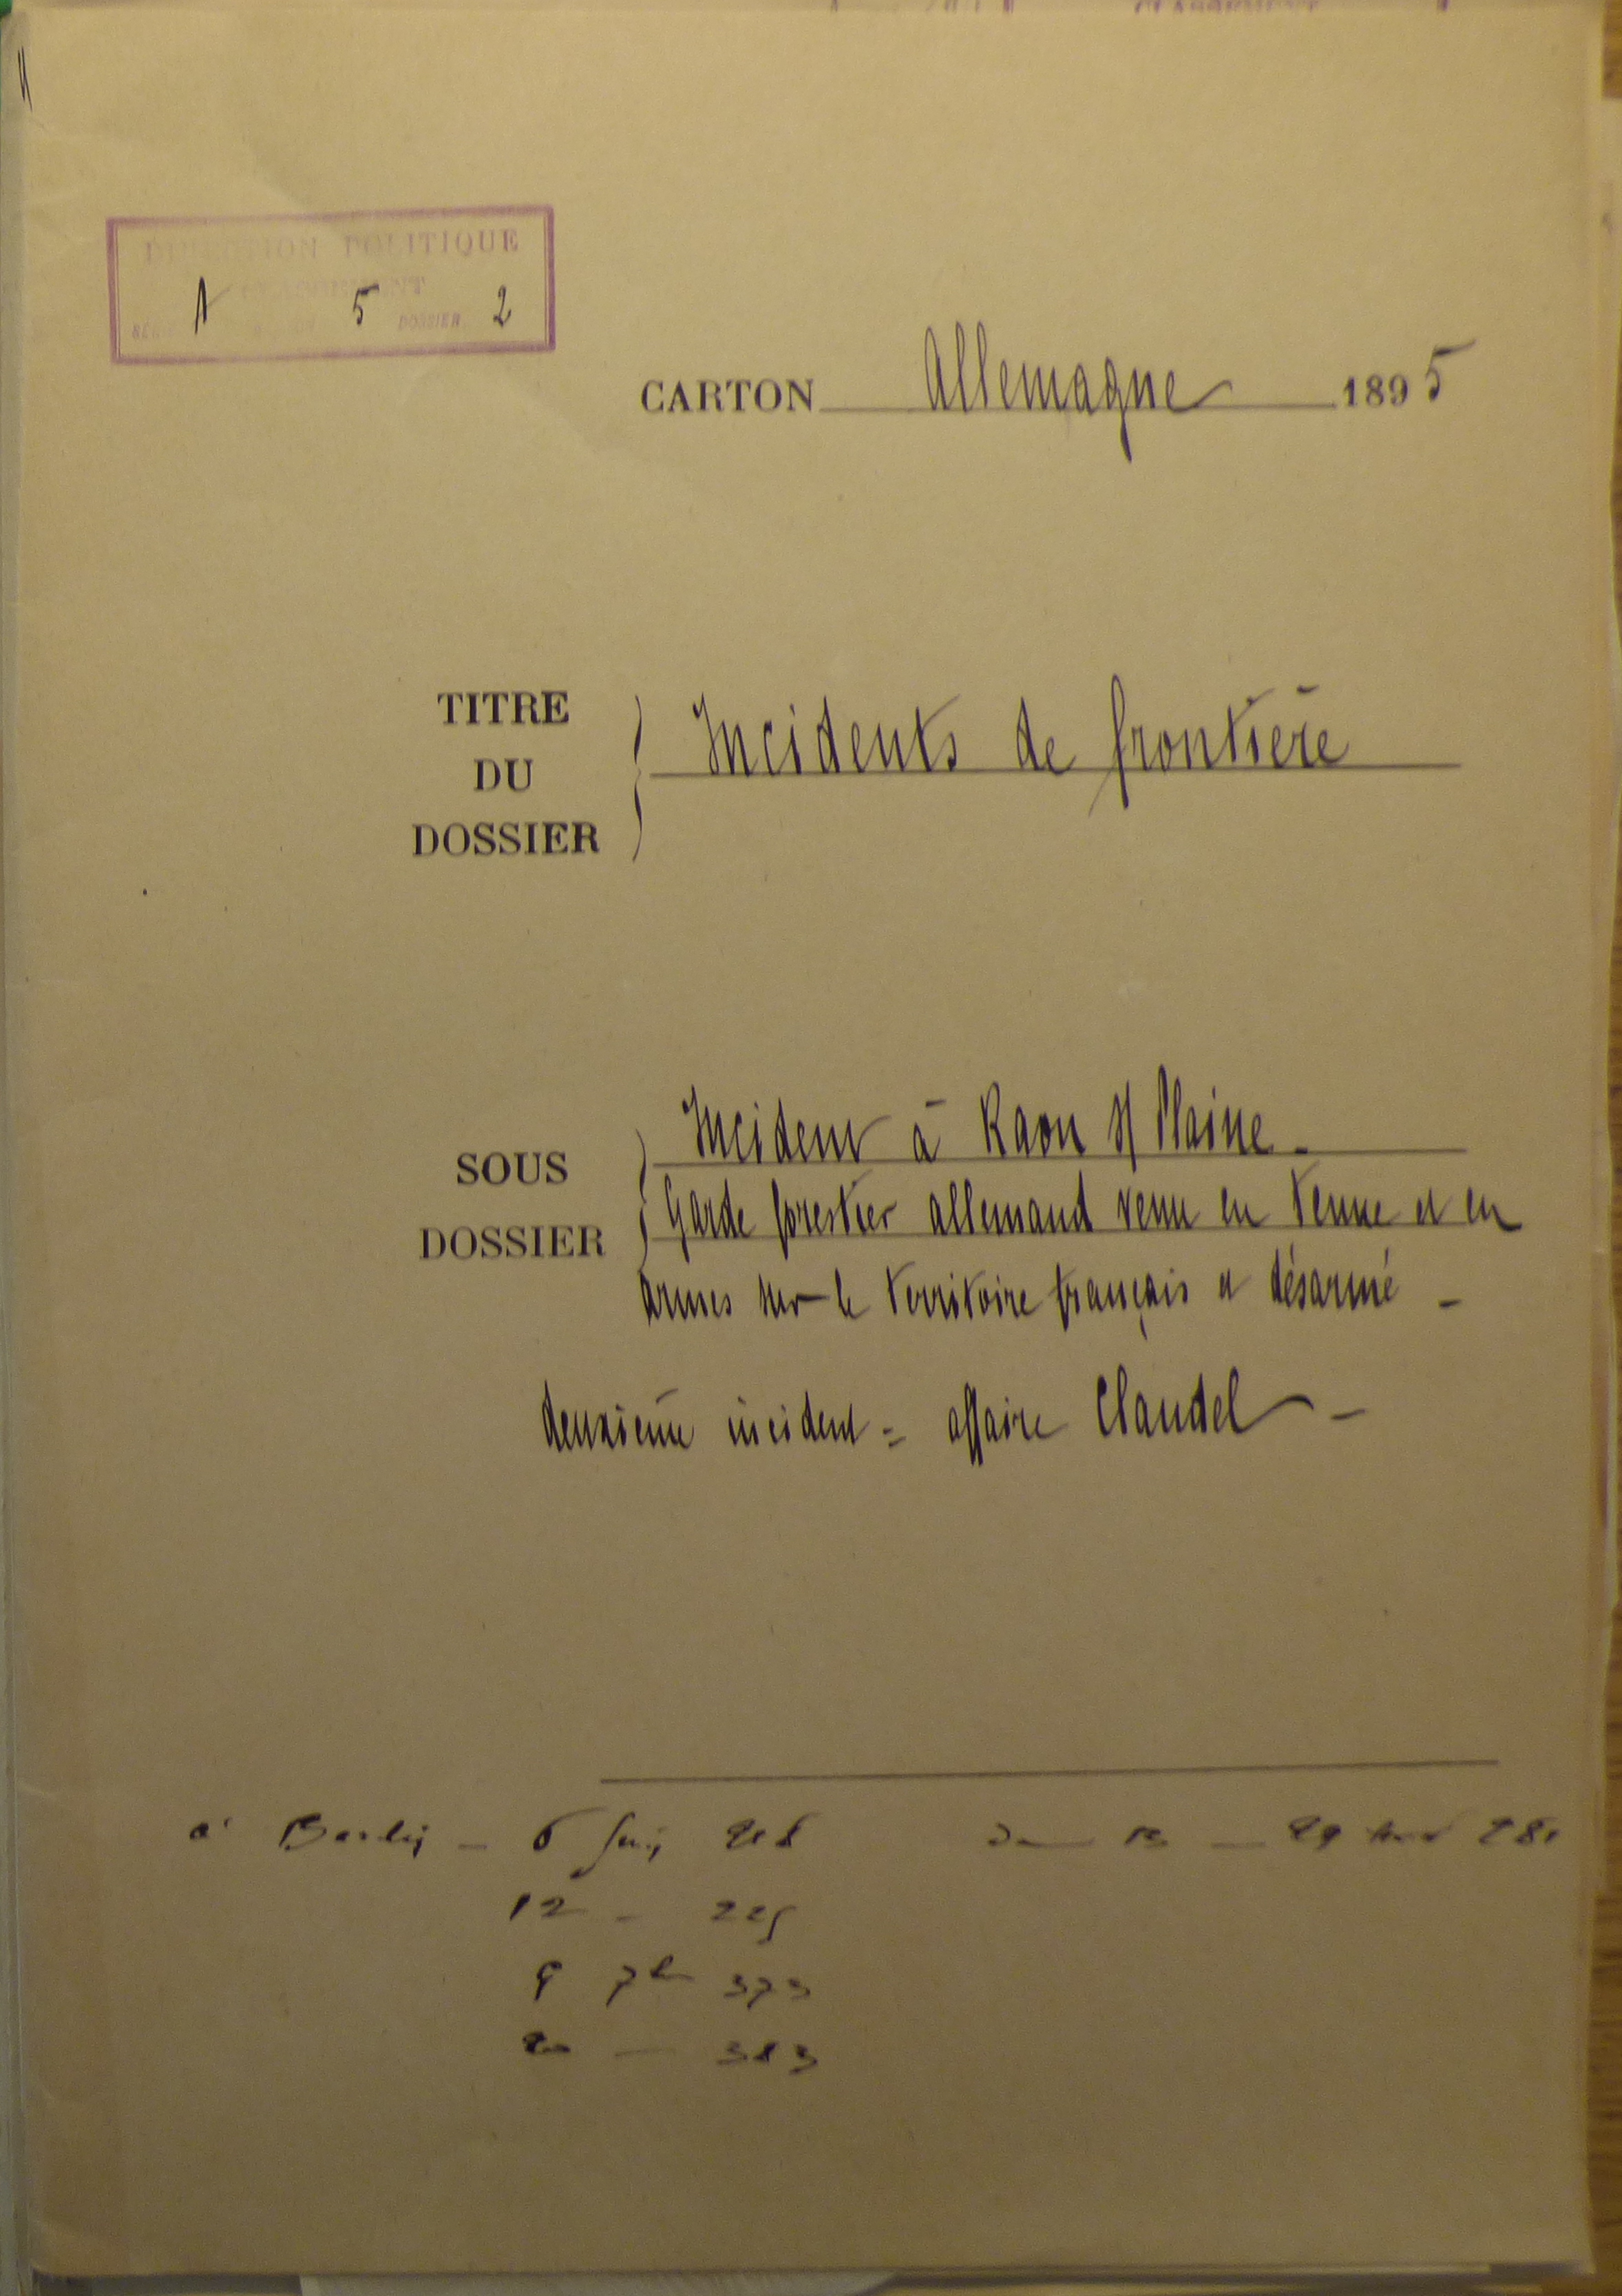 DIRECTION POLITIQUE
CLASSEMENT
5 DOSSIER 2
CARTON Allemagne 1895
TITRE
DU
DOSSIER
Incidents de frontière
SOUS
DOSSIER
Incident à Raon s/ Plaine -
Garde forestier allemand venu en tenue et en
armes sur le territoire français et désarmé -
deuxième incident = affaire Claudel -
à Berlin - 6 Juin 218
12 - 225
9 7bre 373
20 - 383